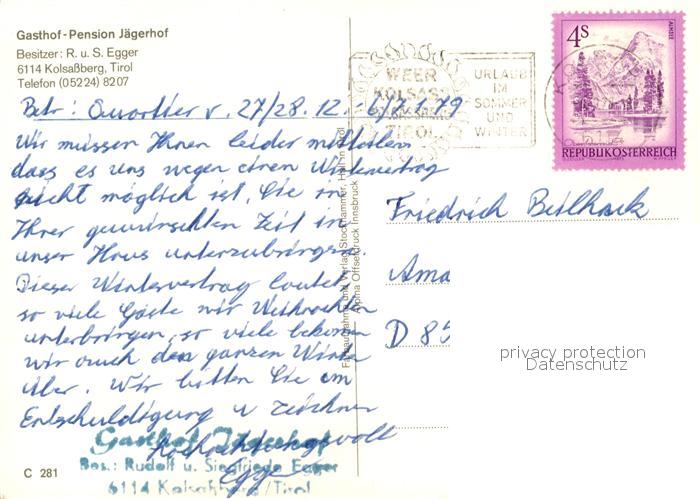 Gasthof-Pension Jägerhof
Besitzer: R. u. S. Egger
6114 Kolsaßberg, Tirol
Telefon (05224) 8207
Betr: Quartier v. 27/28.12.-6/7.1.79
Wir müssen Ihnen leider mitteilen
dass es uns wegen einen Wintervertrag
nicht möglich ist, Sie in
Ihrer gewünschten Zeit in
unser Haus unterzubringen.
Dieser Wintervertrag lautet
so viele Gäste wir Weihnachten
unterbringen, so viele bekommen
wir auch den ganzen Winter
über. Wir bitten Sie um
Entschuldigung u zeichnen
Hochachtungsvoll
Egger
Gasthof Jägerhof
Bes.: Rudolf u. Siegfriede Egger
6114 Kolsaßberg/Tirol
C 281
Fotoaufnahme und Verlag Stockhammer, Hall in Tirol
Alpina Offsetdruck Innsbruck
WEER
KOLSASS
TIROL
URLAUB
IM
SOMMER
UND
WINTER
4S
ALMSEE
REPUBLIK ÖSTERREICH
Friedrich
Ama
D 85
privacy protection
Datenschutz